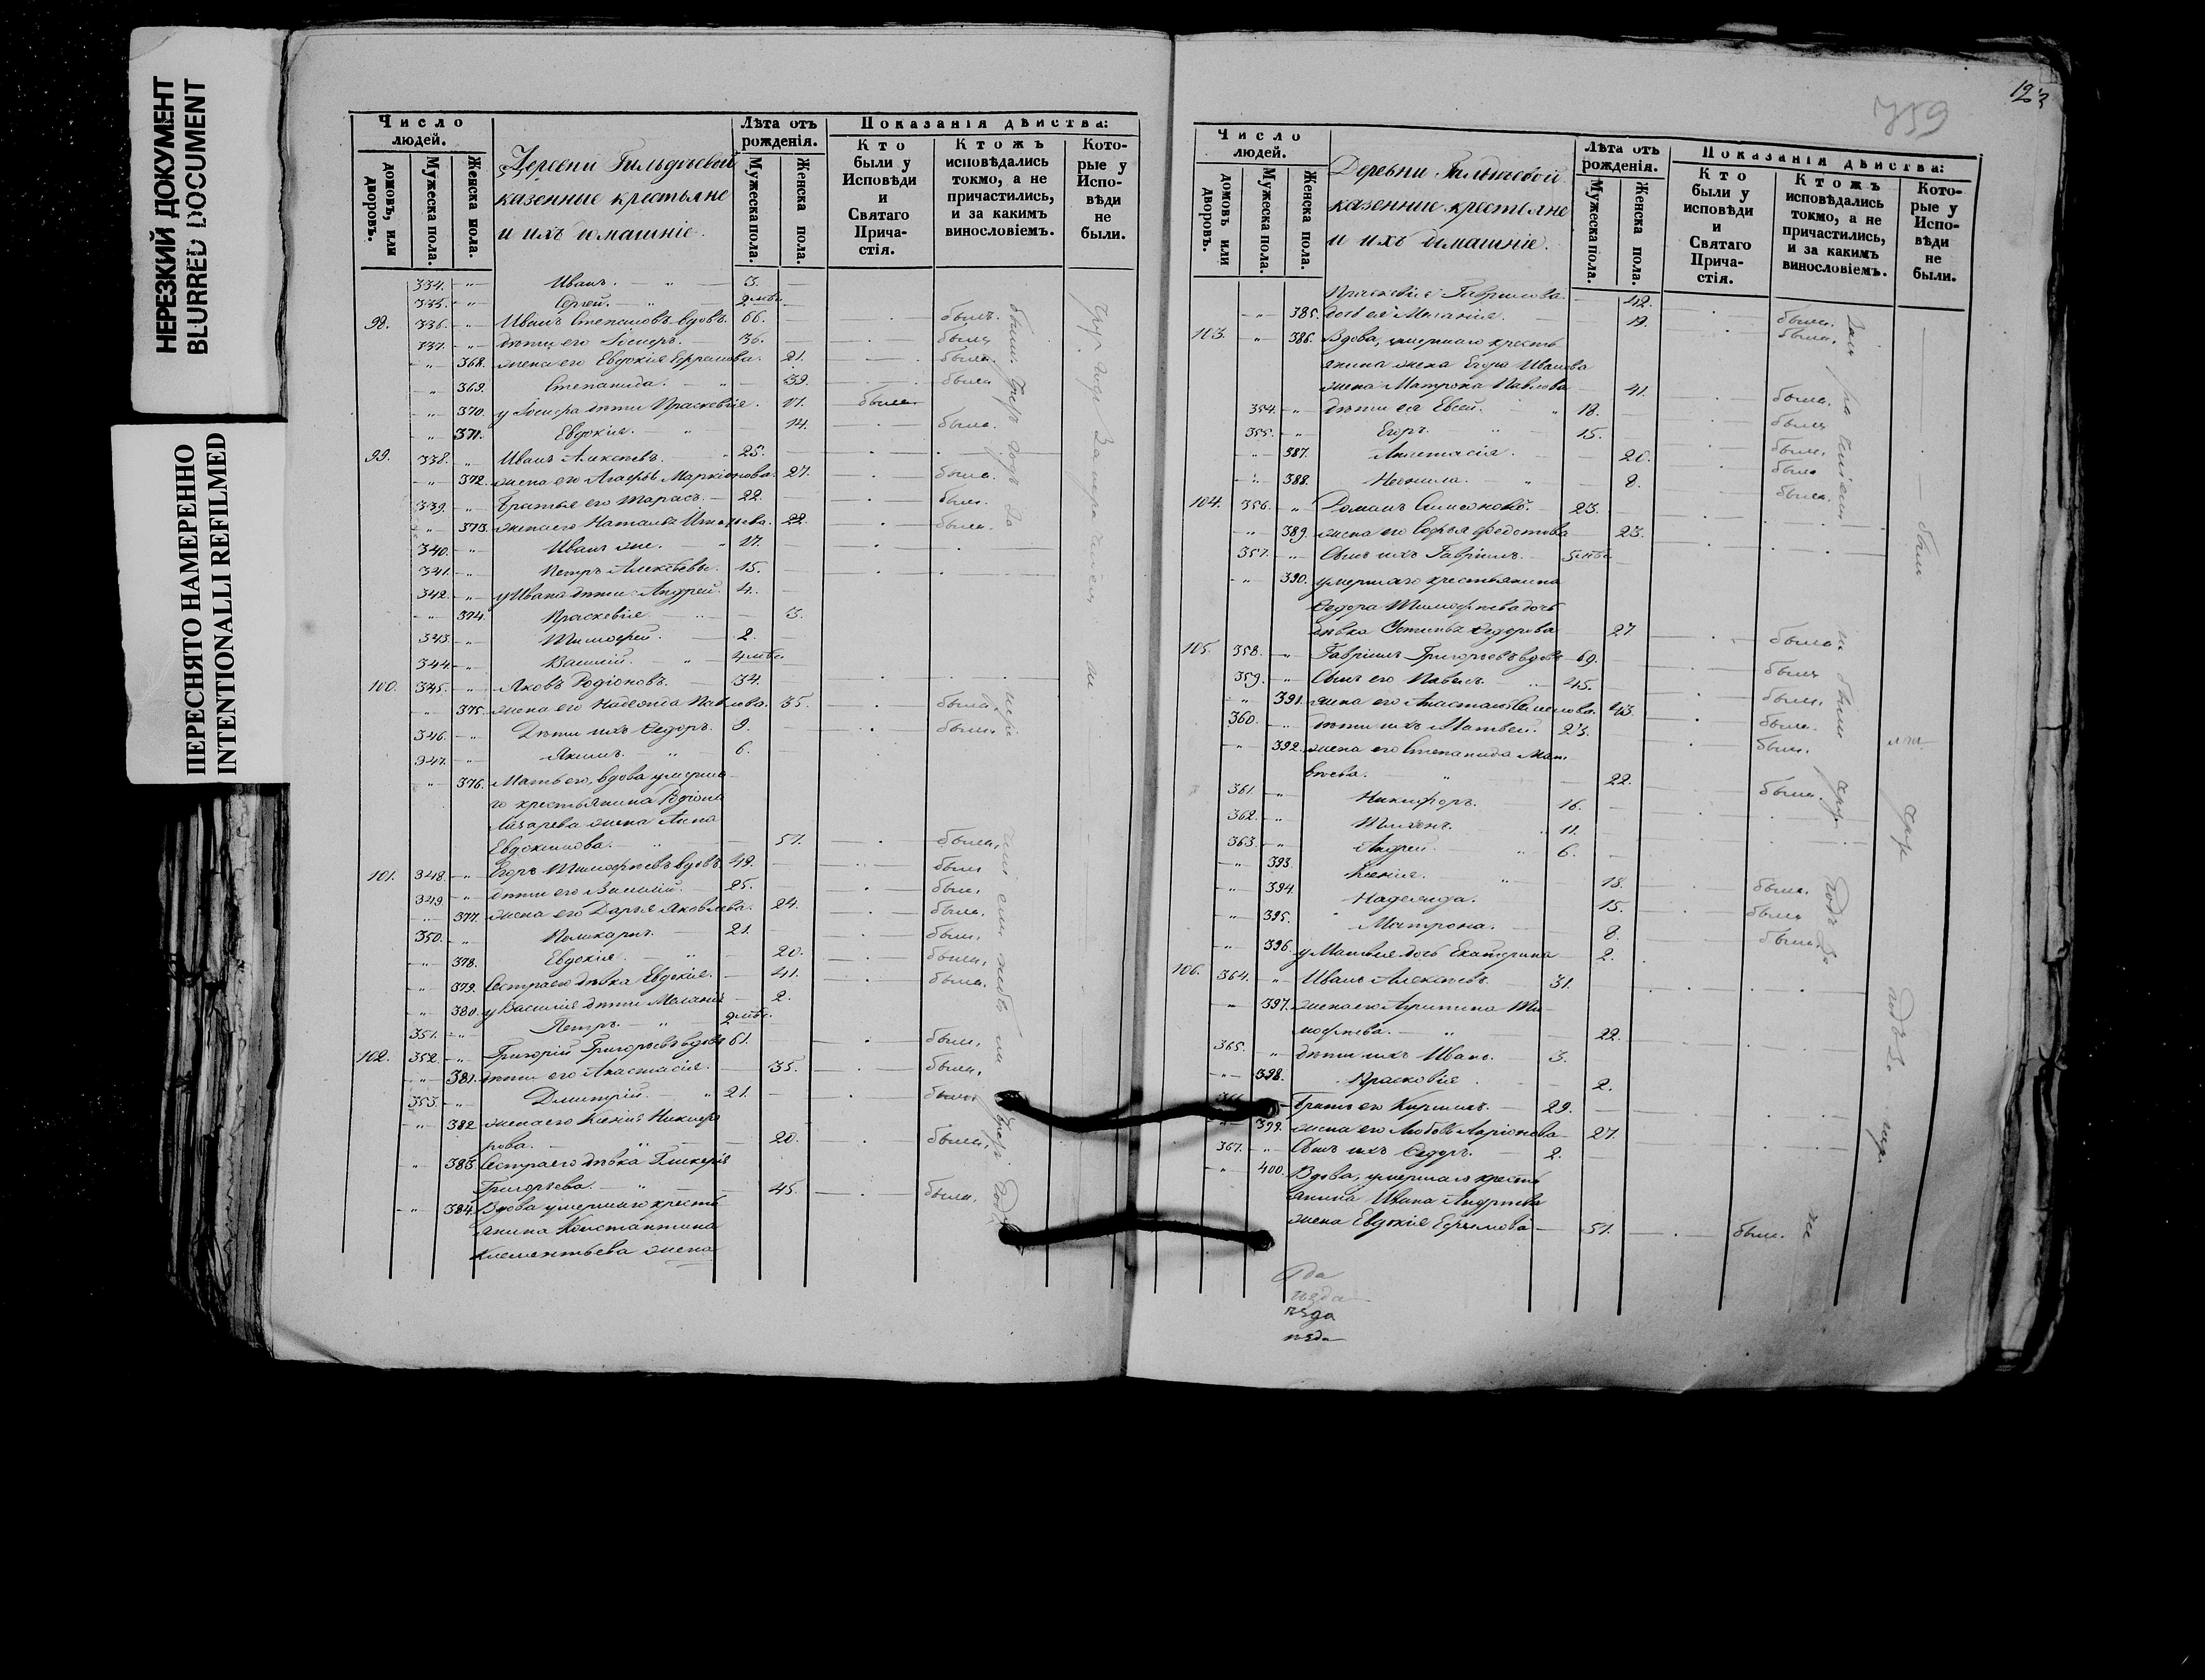 НЕРЕЗКИЙ ДОКУМЕНТ
BLURRED DOCUMENT
ПЕРЕСНЯТО НАМЕРЕННО
INTENTIONALLI REFILMED
Число людей.
домовъ, или дворовъ.
Мужеска пола.
Женска пола.
казенные крестьяне
и ихъ домашніе.
Лѣта отъ рожденія.
Мужеска пола.
Женска пола.
Показанія дѣйства:
Кто были у Исповѣди и Святаго Причастія.
Ктожъ исповѣдались токмо, а не причастились, и за какимъ винословіемъ.
Которые у Исповѣди не были.
334. Иванъ. 3.
335. Сергей. 2 мѣс.
98. 336. Иванъ Степановъ вдовъ. 66. былъ.
337. дѣти его Іосифъ. 36. былъ
368. жена его Евдокія Ефремова. 21. была.
369. Степанида. 39. была
370. у Іосифа дѣти Праскевіа. 17. была
371. Евдокія. 14. была.
99. 338. Иванъ Алексѣевъ. 25.
372. жена его Агафья Маркіонова. 27. была.
339. братья его Тарасъ. 22. былъ.
373. жена его Наталья 22. была.
340. Иванъ же. 17.
341. Петръ Алексѣевы. 15.
342. у Ивана дѣти Андрей. 4.
374. Праскевіа 3.
343. Тимофей. 2.
344. Василій. 4 мѣс.
100. 345. Яковъ Родіоновъ. 34.
375. жена его Надежда Павлова. 35. была.
346. Дѣти ихъ Ѳедоръ. 9. былъ.
347. Якимъ. 6.
376. Мать его, вдова умерша
го крестьянина Родіона
Лазарева жена Анна
Евдокимова. 57. была.
101. 348. Егоръ Тимофѣевъ вдовъ. 49. былъ
349. дѣти его Василій. 25. былъ.
377. жена его Дарья Яковлева. 24. была.
350. Поликарпъ. 21. былъ.
378. Евдокія. 20. была.
379. Сестра его дѣвка Евдокія. 41. была.
380. у Василія дѣти Меланія 2.
351. Петръ. 2 мѣс.
102. 352. Григорій Григорьевъ вдовъ 61. былъ.
381. дѣти его Анастасія. 35. была.
353. Дмитрій. 21. былъ
382. жена его Ксенія Никифо
рова. 20. была.
383. Сестра его дѣвка Гликерія
Григорьева. 45. была.
384. Вдова умершаго кресть
янина Константина
Климентьева жена
759
123
Число людей.
домовъ или дворовъ.
Мужеска пола.
Женска пола.
казенные крестьяне
и ихъ домашніе.
Лѣта отъ рожденія.
Мужеска пола.
Женска пола.
Показанія дѣйства:
Кто были у исповѣди и Святаго Причастія.
Ктожъ исповѣдались токмо, а не причастились, и за какимъ винословіемъ.
Которые у Исповѣди не были.
Праскевіа Гаврилова. 42. была.
385. дочь ея Меланія. 19. была.
103. 386. Вдова, умершаго кресть
янина жена Егора Иванова
жена Матрона Павлова 41. была.
354. дѣти ея Евсей. 18. былъ
355. Егоръ. 15. былъ.
387. Анастасія. 20. была
388. Неонила. 8. была.
104. 356. Романъ Симеоновъ. 23.
389. жена его Софья Ѳедотова 23.
357. Сынъ ихъ Гавріилъ. 5 мѣс.
390. умершаго крестьянина
Ѳедора Тимофѣева дочь
дѣвка Устинья Ѳедорова 27 была.
105. 358. Гавріилъ Григорьевъ вдовъ 69. былъ
359. Сынъ его Павелъ. 45. былъ.
391. жена его Анастасія Семенова. 43. была.
360. дѣти ихъ Матвей. 23. былъ.
392. жена его Степанида Мат
вѣева. 22. была.
361. Никифоръ. 16.
362. Тихонъ. 11.
363. Андрей. 6.
393. Ксенія. 18. была.
394. Надежда. 15. была
395. Матрона. 8. была.
396. у Матвея дочь Екатерина 2.
106. 364. Иванъ Алексѣевъ 31.
397. жена его Агрипина Ти
мофѣева. 22.
365. дѣти ихъ Иванъ. 3.
398. Праскевіа 2.
братъ его Кирилъ. 29.
399. жена его Любовь Ларіонова 27.
367. Сынъ ихъ Ѳедоръ. 2.
400. Вдова, умершаго кресть
янина Ивана Андреева
жена Евдокія Ефимова 57. была.